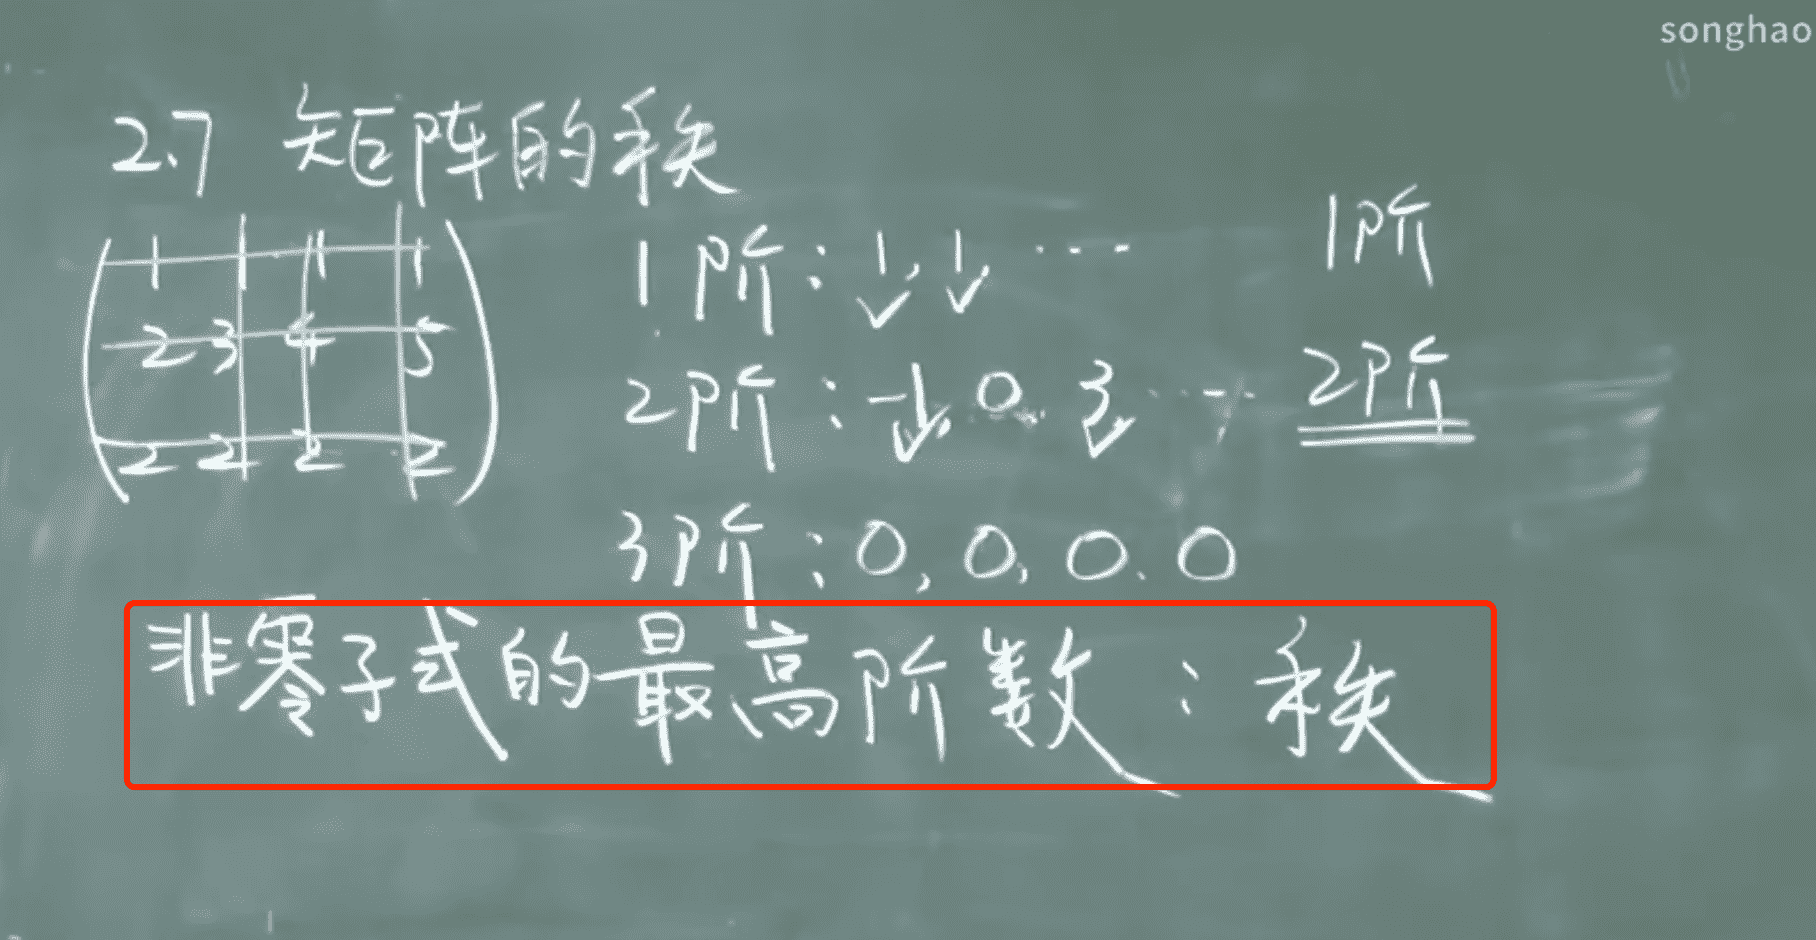 songhao
2.7 矩阵的秩
1 1 1 1
2 3 4 5
2 2 2 2
1阶：1, 1, …
2阶：-1, 0, 3, …
3阶：0, 0, 0, 0
1阶
2阶
非零子式的最高阶数：秩